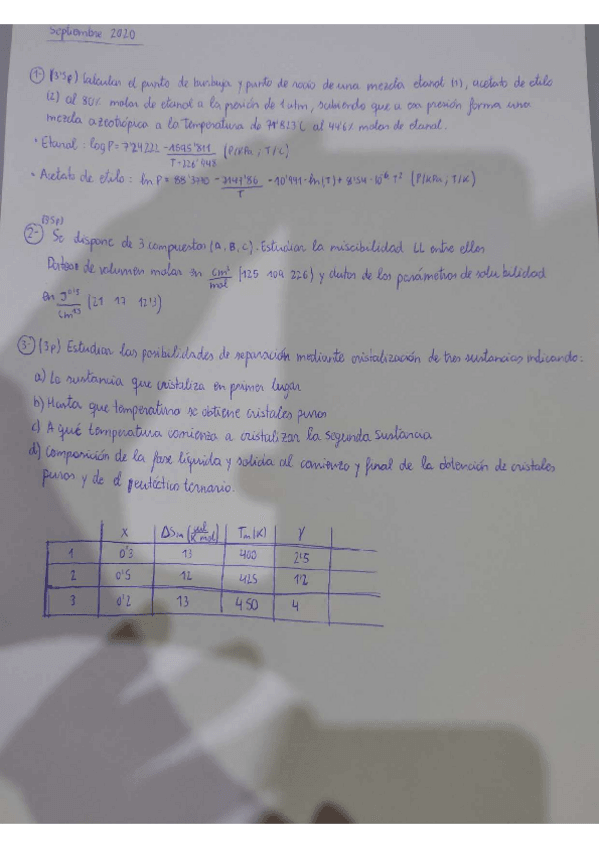 Septiembre 2020
1- (3'5p) Calcular el punto de burbuja y punto de rocío de una mezcla etanol (1), acetato de etilo
(2) al 80% molar de etanol a la presión de 1 atm, sabiendo que a esa presión forma una
mezcla azeotrópica a la temperatura de 71'823 C al 44'6% molar de etanol.
• Etanol: log P = 7'24222 - 1595'811 (P/KPa; T/C)
T+226'448
• Acetato de etilo: ln P = - - 10'991 · ln(T) + T² (P/KPa; T/K)
T
(3'5p)
2- Se dispone de 3 compuestos (A, B, C). Estudiar la miscibilidad LL entre ellos
Datos de volumen molar en cm³/mol (125 109 226) y datos de los parámetros de solubilidad
en (21 17 12'3)
3- (3p) Estudiar las posibilidades de separación mediante cristalización de tres sustancias indicando:
a) La sustancia que cristaliza en primer lugar
b) Hasta que temperatura se obtiene cristales puros
c) A qué temperatura comienza a cristalizar la segunda sustancia
d) Composición de la fase líquida y sólida al comienzo y final de la obtención de cristales
puros y de el eutéctico ternario.
X ΔSm Tm(K) γ
1 0'3 13 400 2'5
2 0'5 12 425 1'2
3 0'2 13 450 4